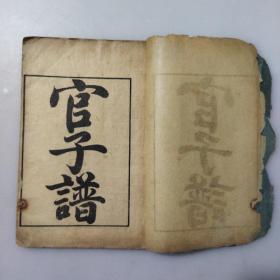 官子譜